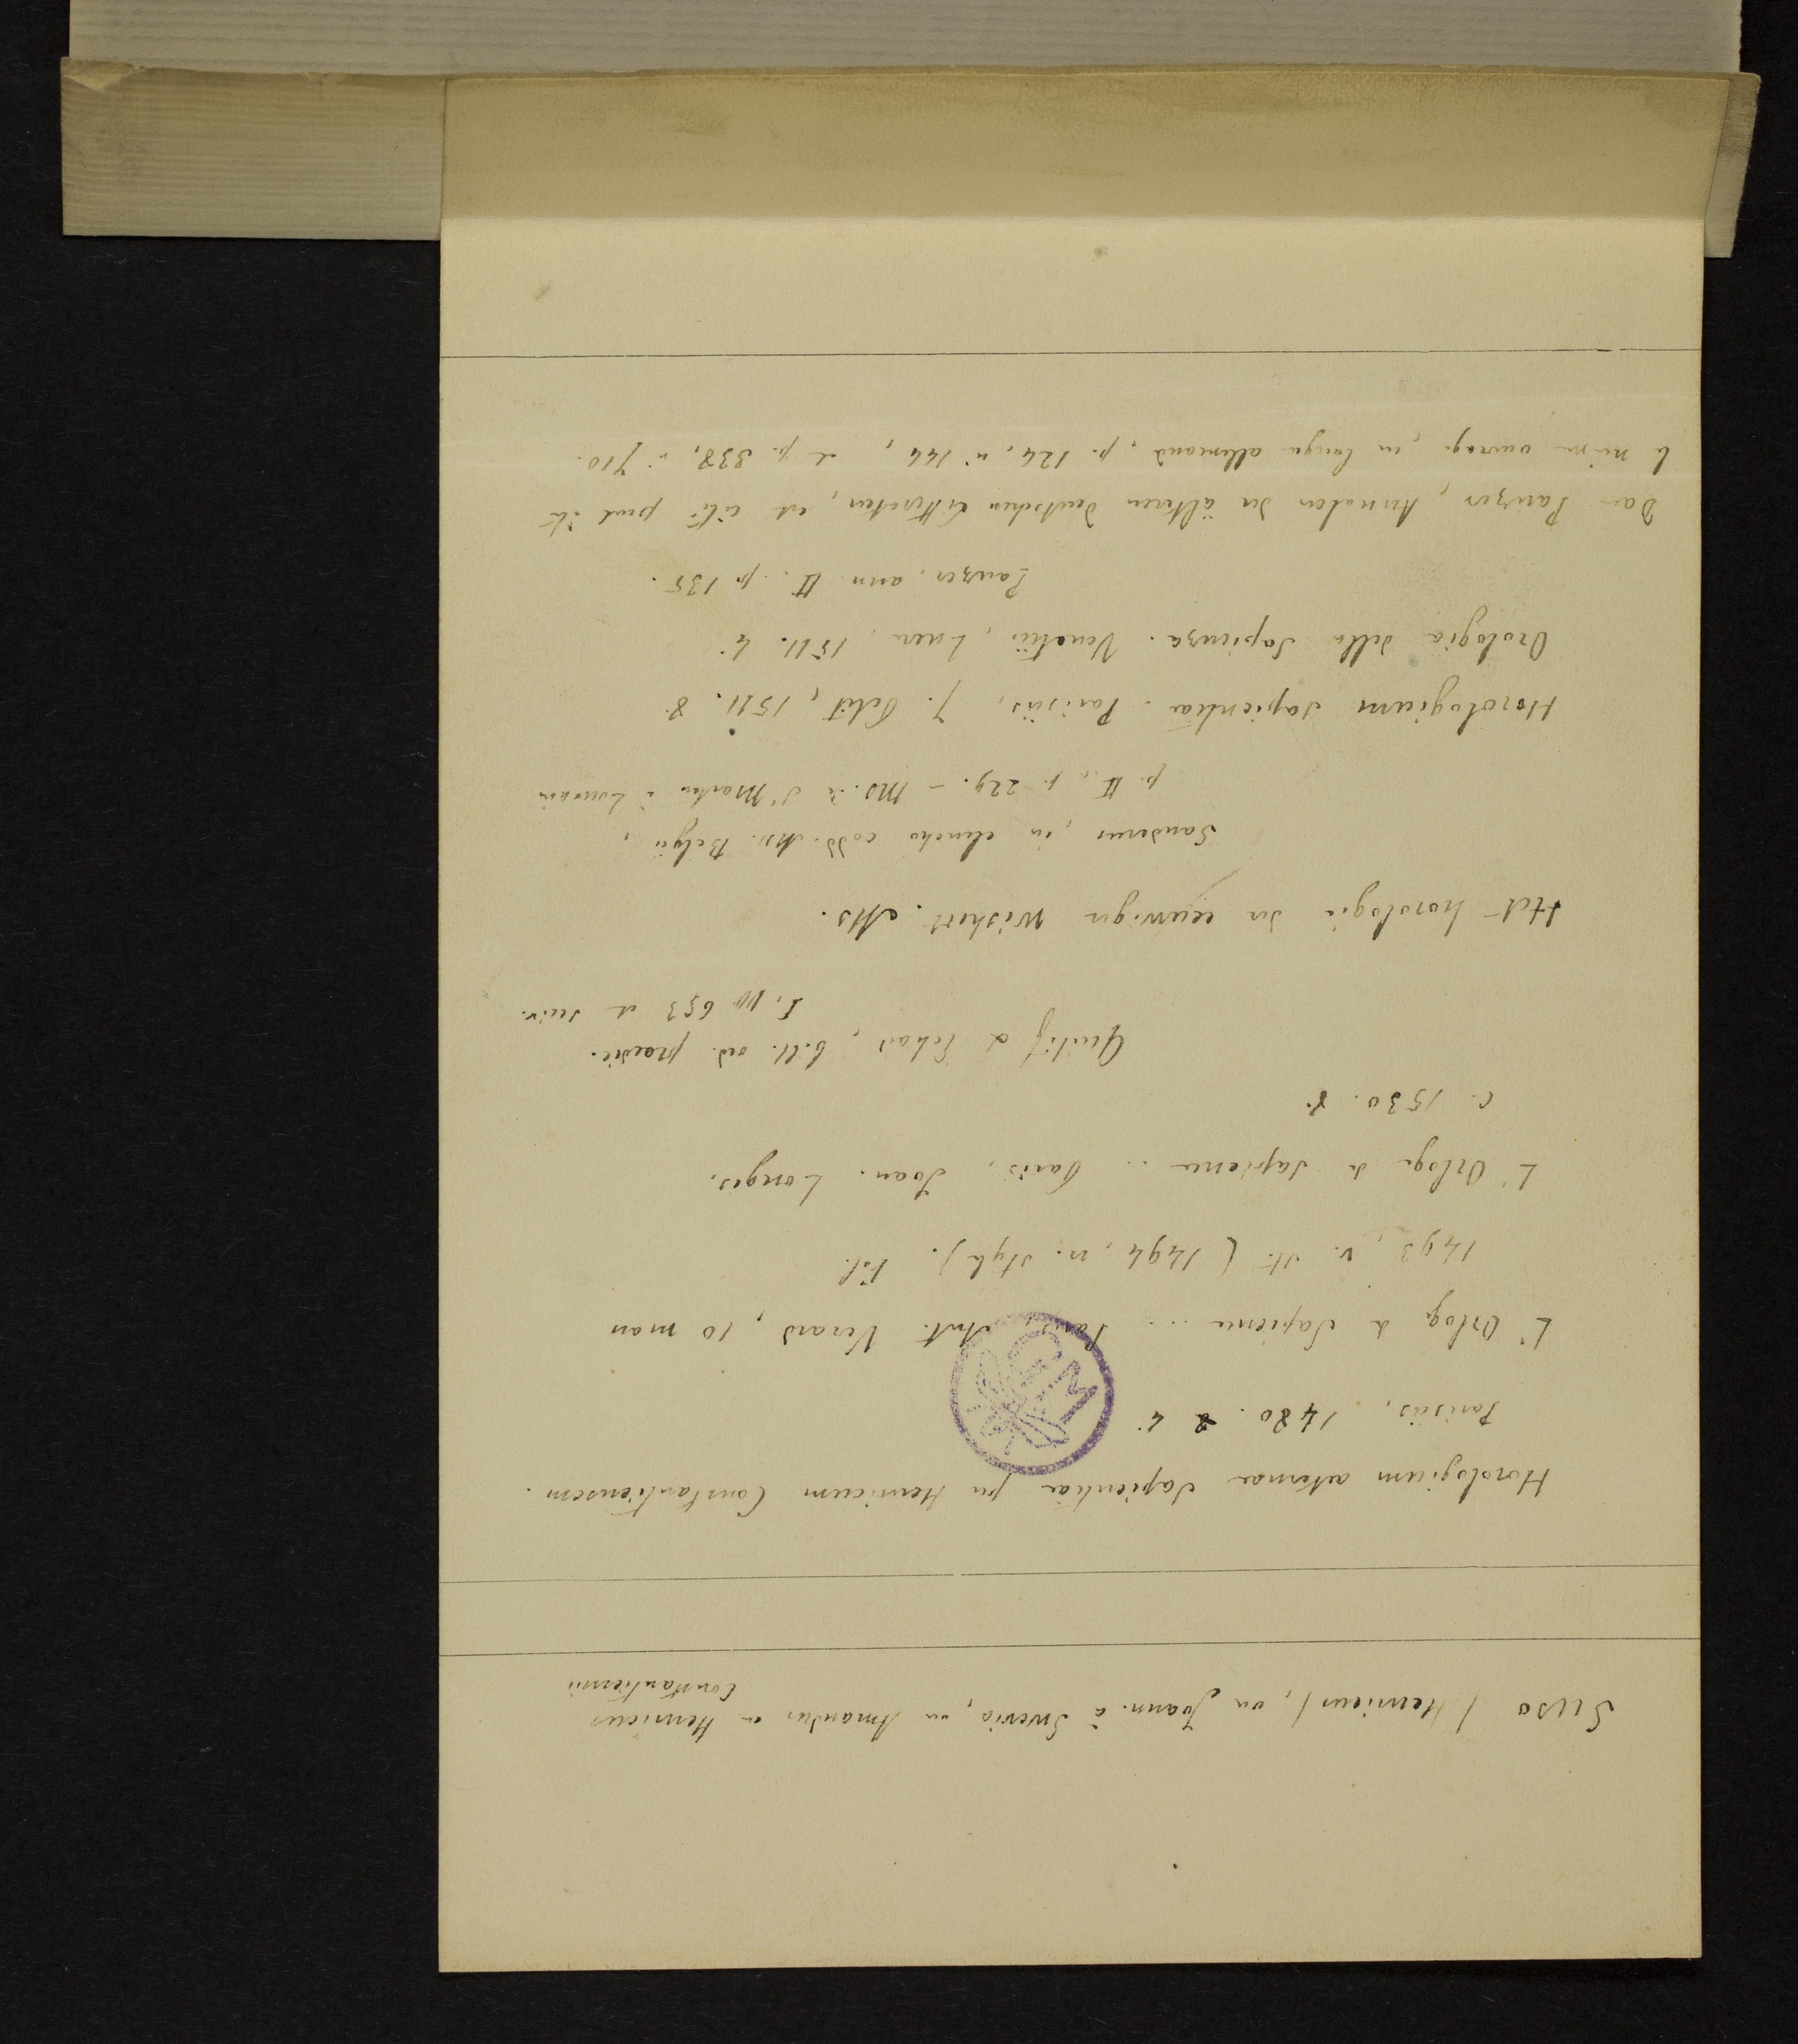 Suso (Henricus), ou Joann. à Suevia, ou Amandus ou Henricus
Constantiensis
Horologium aeternae Sapientiae per Henricum Constantiensem.
Parisiis, 1480. 4.
L'Orloge de Sapience ... Paris, Ant. Verard, 10 mars
1493, v. st. (1494, n. style). Fol.
L'Orloge de Sapience ... Paris, Joan. Longis,
c. 1530. 8.
Quétif et Echard, bibl. ord. praedic.
I, pp 653 et suiv.
Het horologie der eeuwiger wisheit. Ms.
Sanderus, in elencho codd. Mss. Belgii,
p. II, p. 229. – Ms. de St Martin à Louvain
Horologium sapientiae. Parisiis, J. Petit, 1511. 8.
Orologia della Sapienza. Venetiis, Luere, 1511. 4.
Panzer, ann. II. p. 135.
Dans Panzer, Annalen der älteren deutschen Litteratur, est cité peut être
le même ouvrage, en langue allemande, p. 124, n° 144, et p. 338, n° 710.
CM